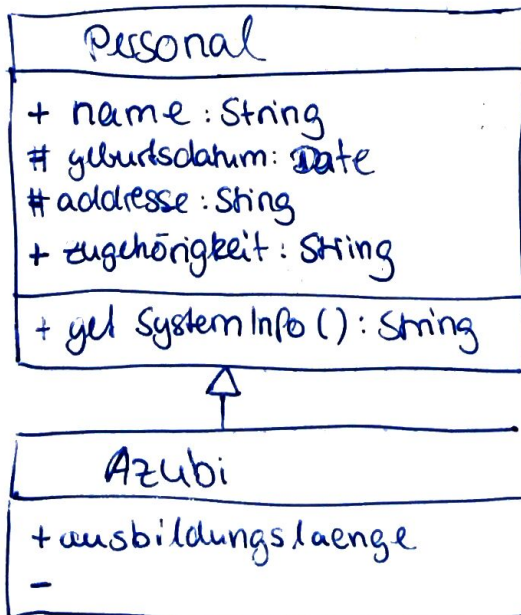 Personal
+ name : String
# geburtsdatum : Date
# addresse : String
+ zugehörigkeit : String
+ get SystemInfo () : String
Azubi
+ ausbildungslaenge
-